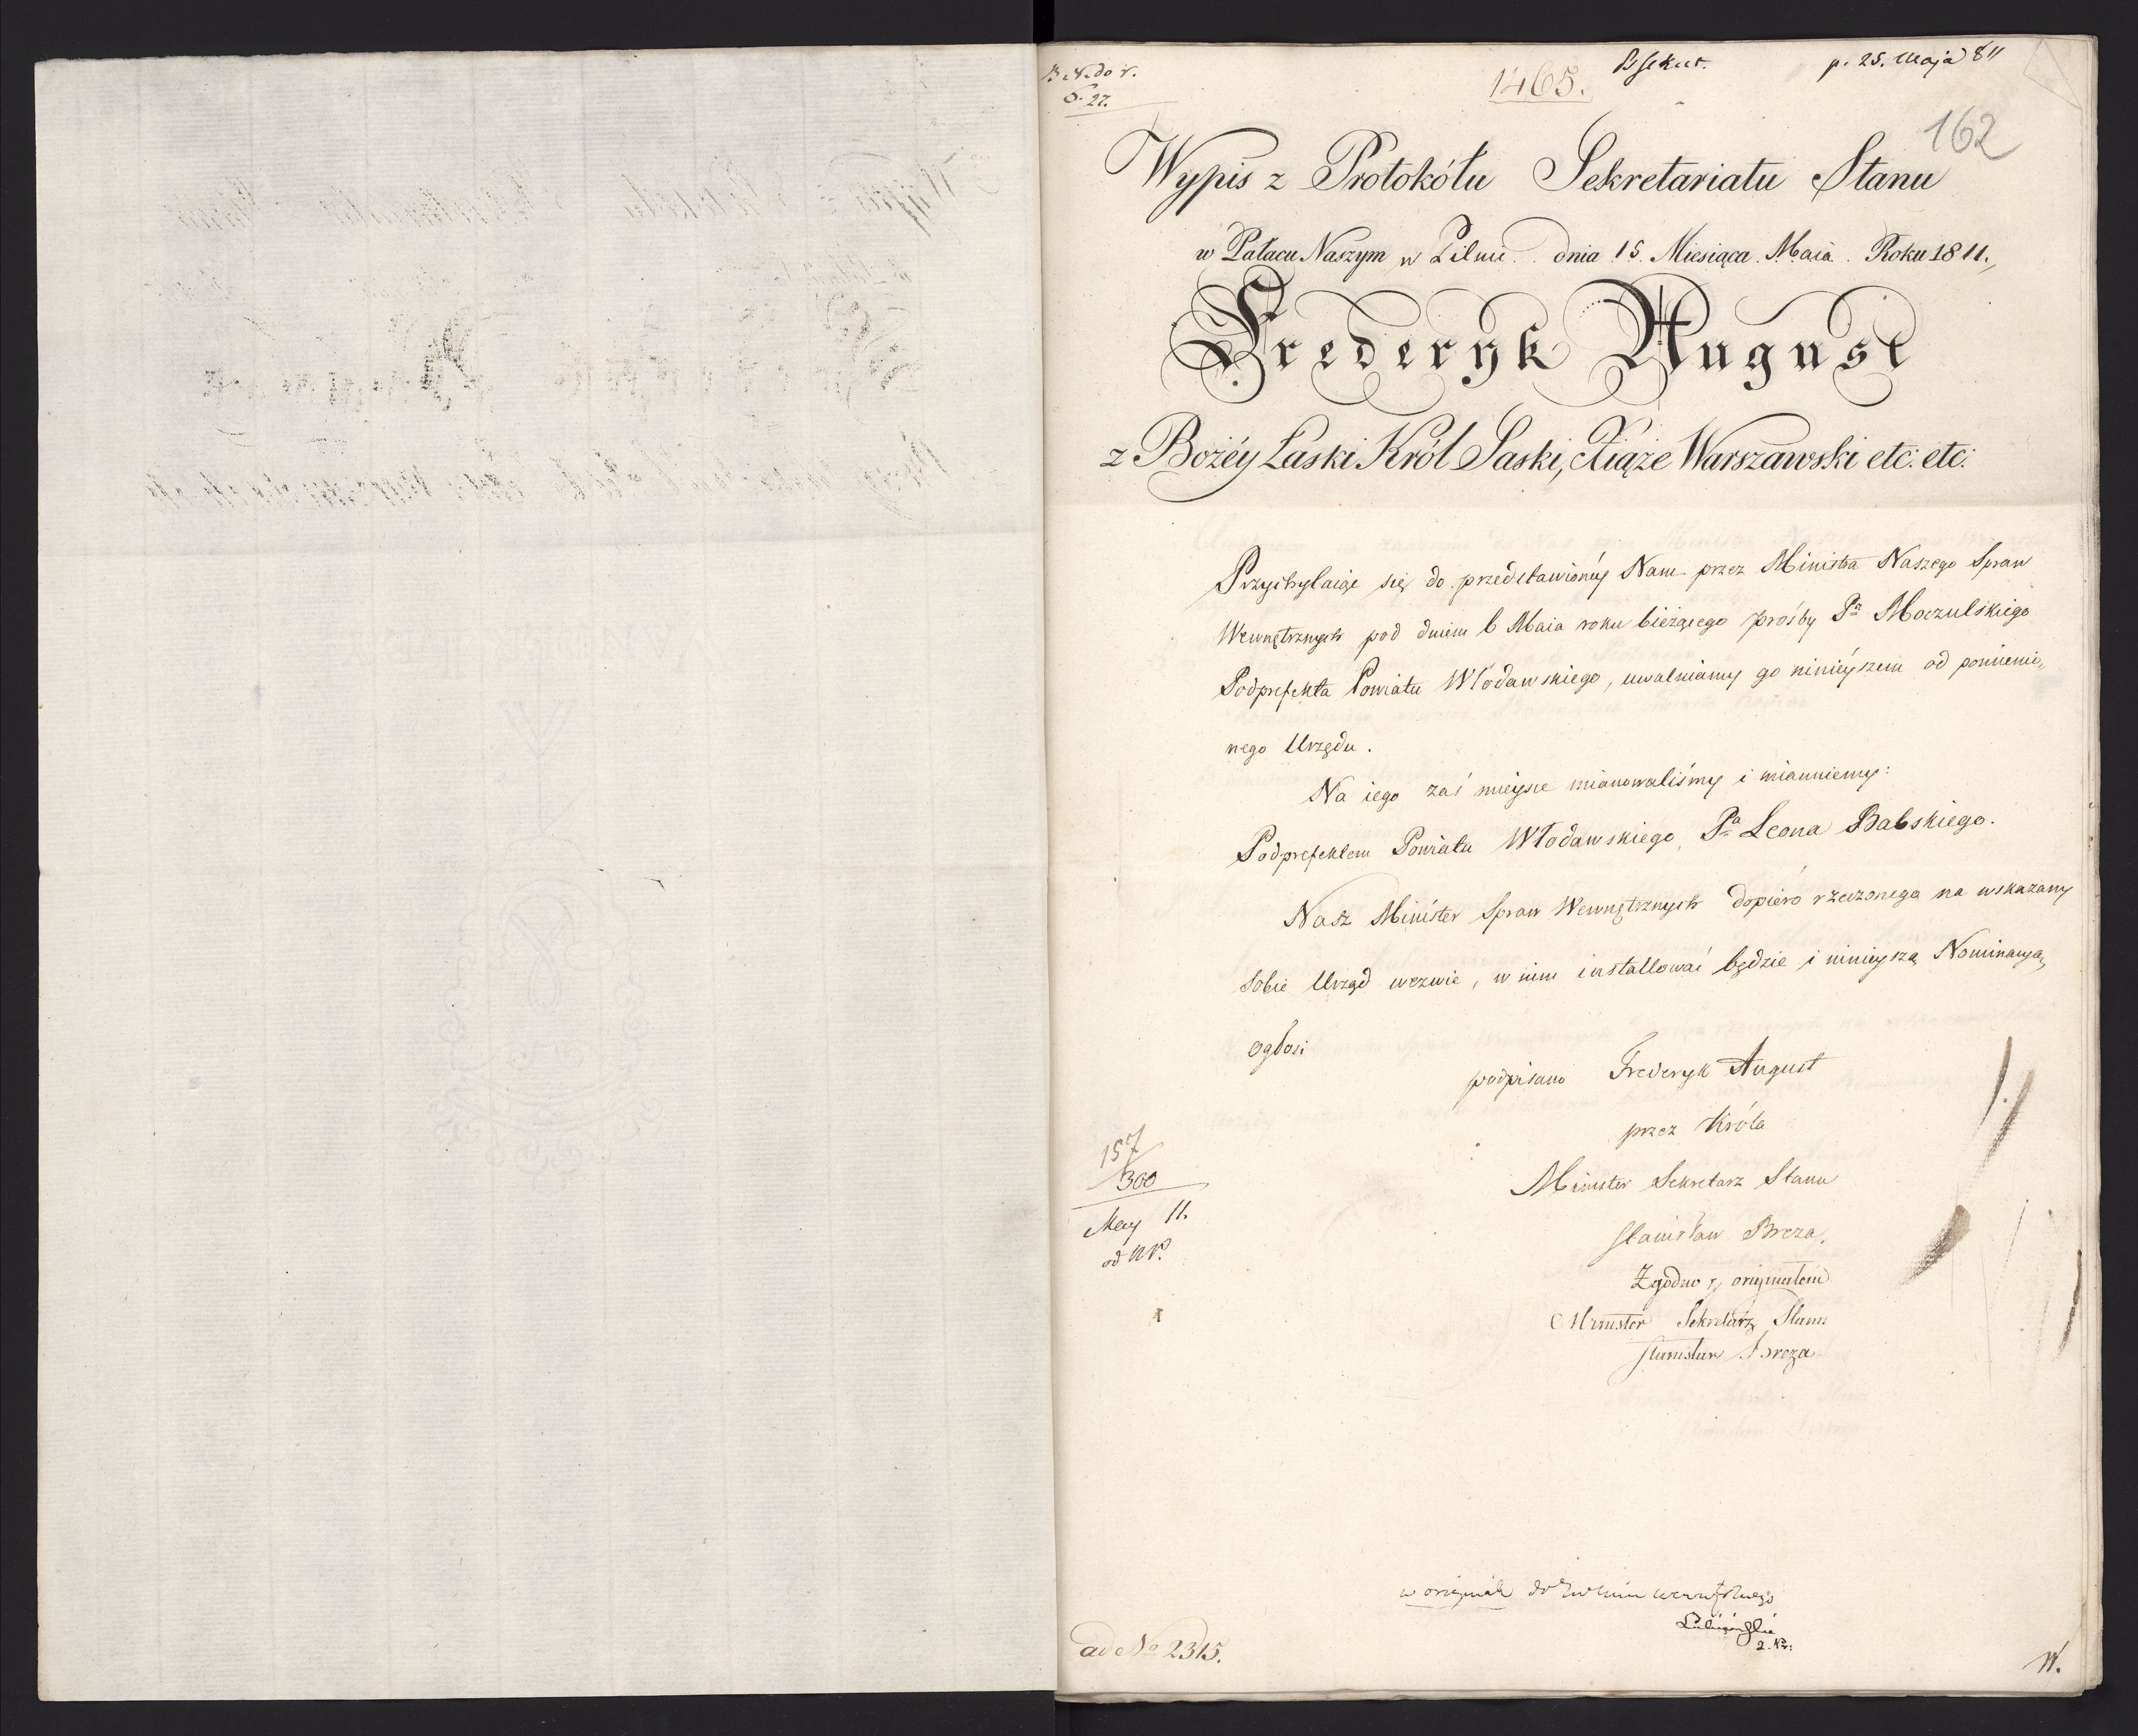 1465.
p. 25. Maja 811
162
Wypis z Protokółu Sekretariatu Stanu
w Pałacu Naszym w Pilnic. dnia 15. Miesiąca Maia Roku 1811.
Frederyk August
z Bożéy Łaski Król Saski, Xiąże Warszawski etc: etc:
Przychylaiąc się do przedstawionéy Nam przez Ministra Naszego Spraw
Wewnętrznych pod dniem 6 Maia roku bieżącego prośby Pa Moczulskiego
Podprefekta Powiatu Włodawskiego, uwalniamy go ninieyszem od pomienio„
nego Urzędu.
Na iego zaś mieysce mianowaliśmy i mianuiemy:
Podprefektem Powiatu Włodawskiego, Pa Leona Babskiego.
Nasz Minister Spraw Wewnętrznych dopiéro rzeczonego na wskazany
sobie Urząd wezwie, w nim installować będzie i ninieyszą Nominacyą
ogłosi
podpisano Frederyk August
przez Króla
Minister Sekretarz Stanu
Stanisław Breza.
Zgodno z oryginałem
Minister Sekretarz Stanu
Stanisław Breza
157
300
May 11.
w originale do
ad No 2315.
W.